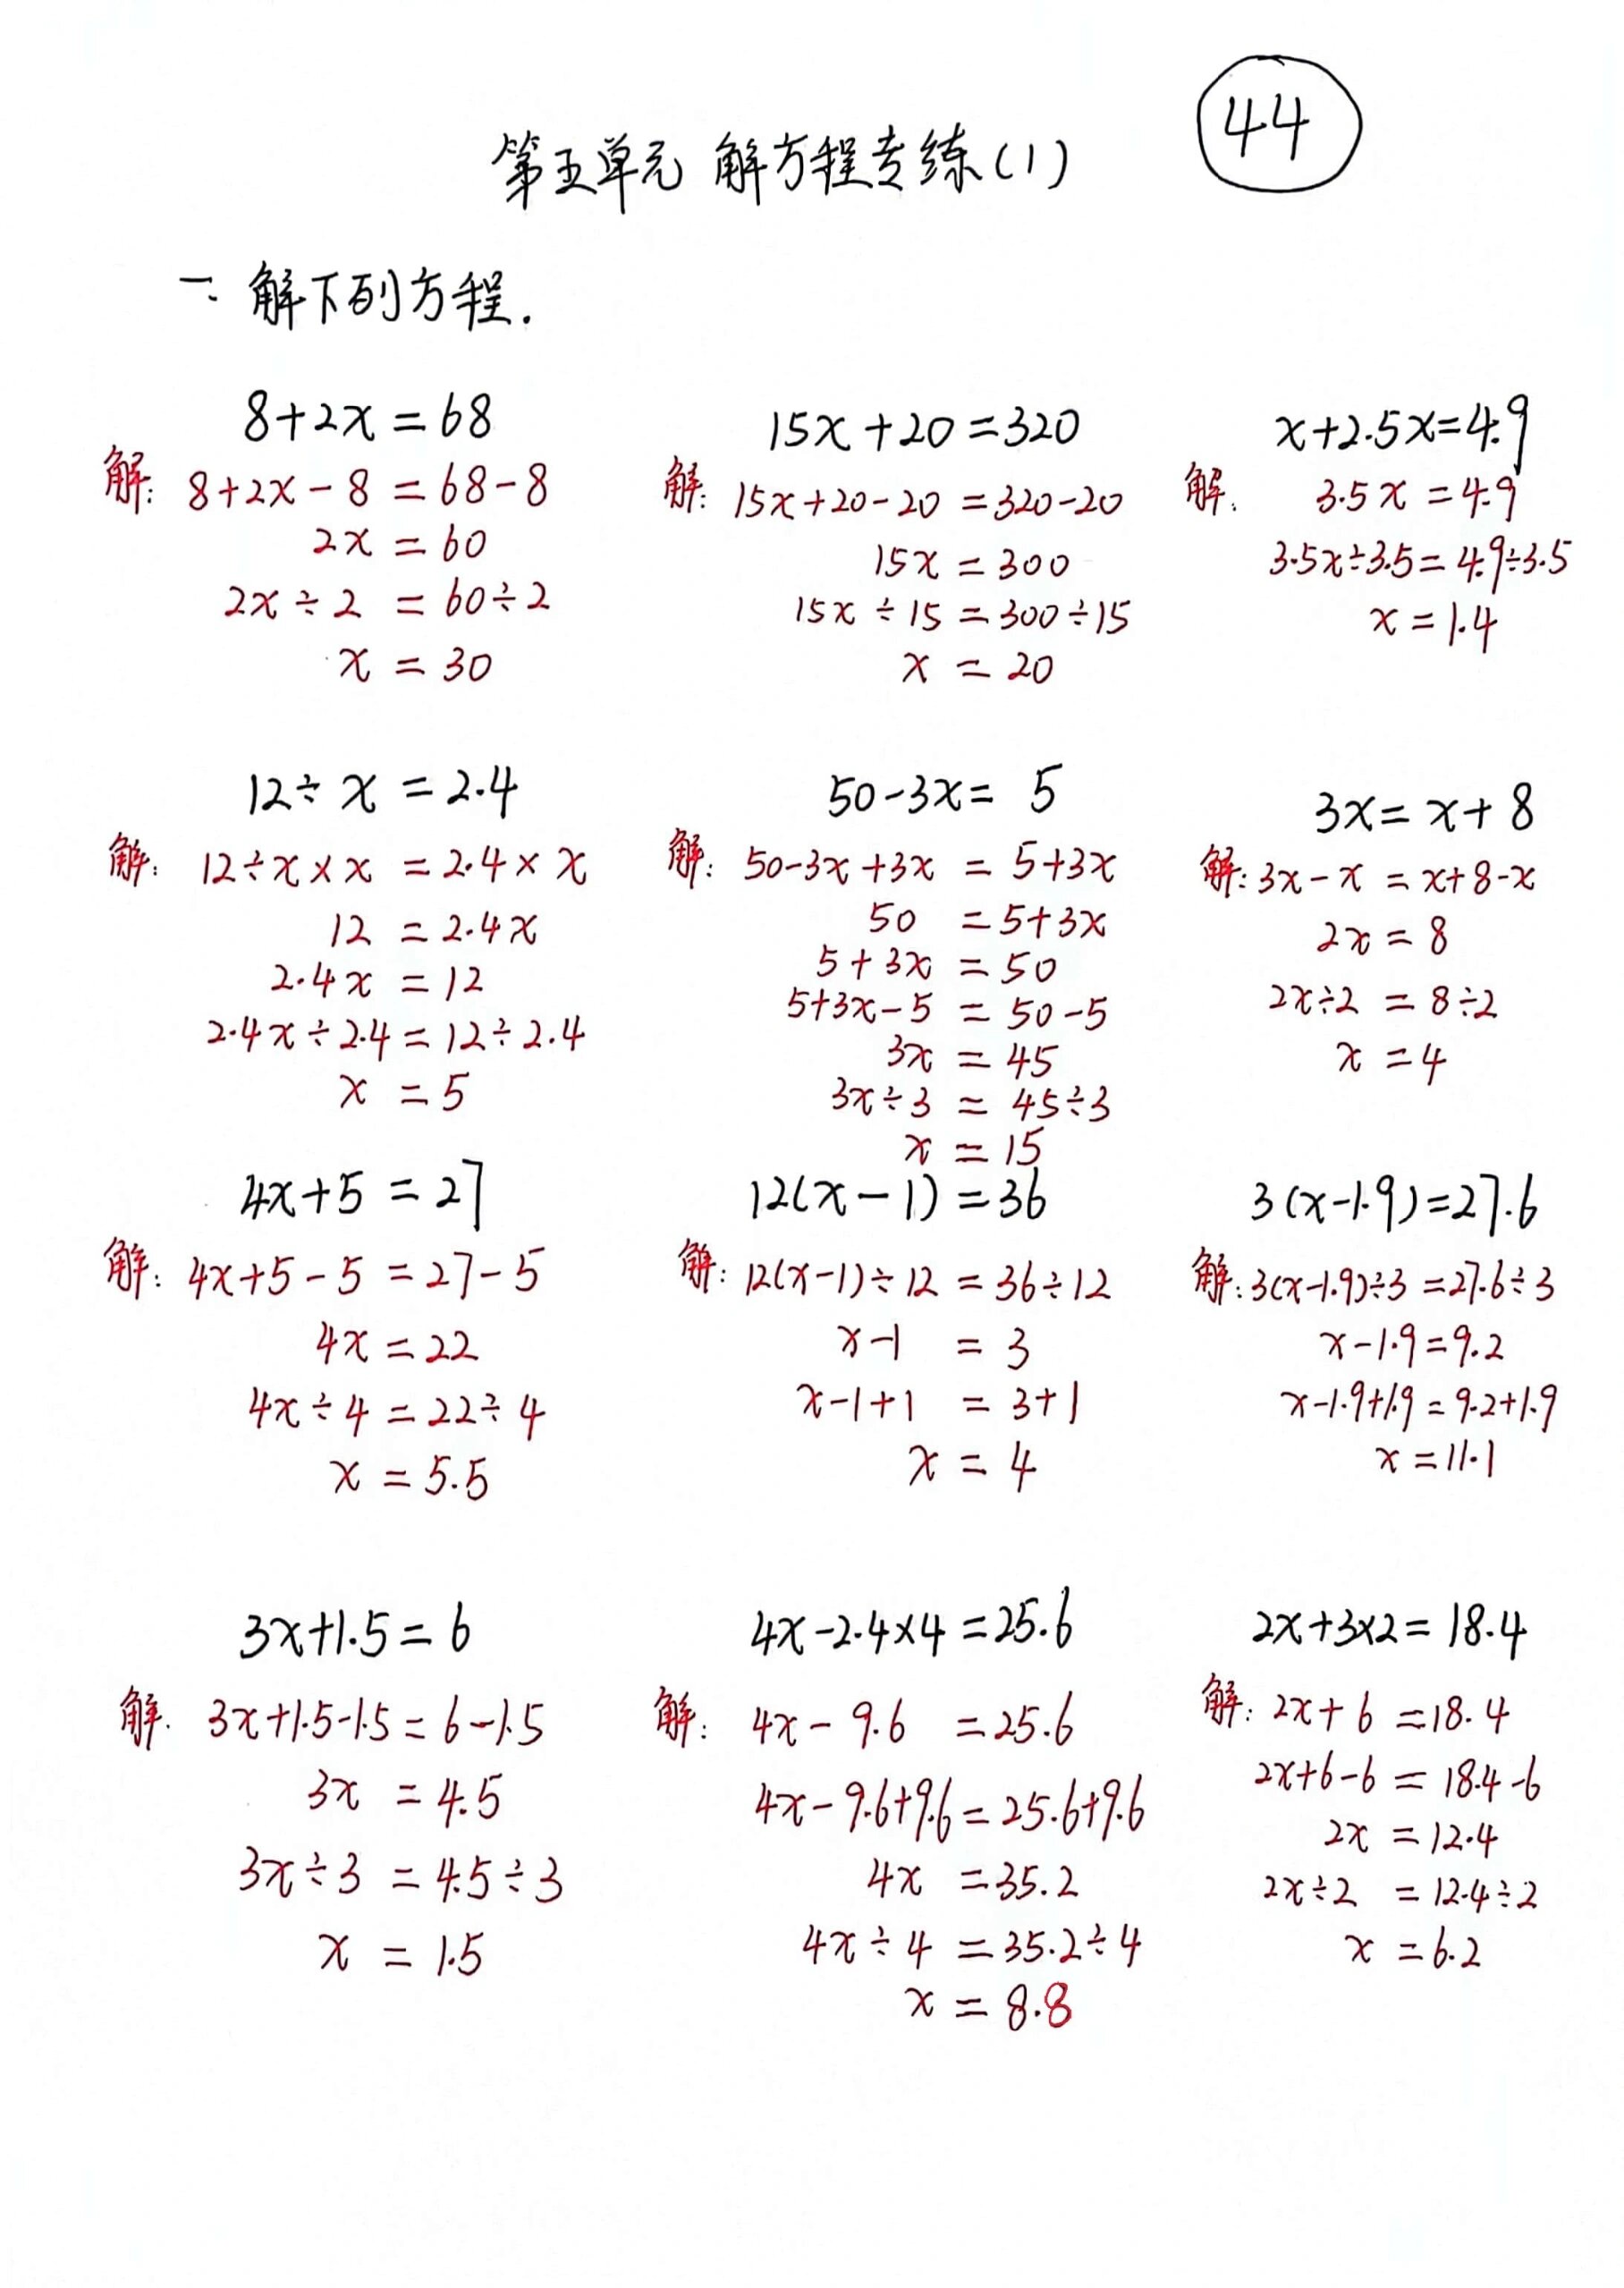 44
第五单元 解方程专练(1)
一. 解下列方程.
8+2x=68
解: 8+2x-8=68-8
2x=60
2x÷2=60÷2
x=30
15x+20=320
解: 15x+20-20=320-20
15x=300
15x÷15=300÷15
x=20
x+2.5x=4.9
解: 3.5x=4.9
3.5x÷3.5=4.9÷3.5
x=1.4
12÷x=2.4
解: 12÷x×x=2.4×x
12=2.4x
2.4x=12
2.4x÷2.4=12÷2.4
x=5
50-3x=5
解: 50-3x+3x=5+3x
50=5+3x
5+3x=50
5+3x-5=50-5
3x=45
3x÷3=45÷3
x=15
3x=x+8
解: 3x-x=x+8-x
2x=8
2x÷2=8÷2
x=4
4x+5=27
解: 4x+5-5=27-5
4x=22
4x÷4=22÷4
x=5.5
12(x-1)=36
解: 12(x-1)÷12=36÷12
x-1=3
x-1+1=3+1
x=4
3(x-1.9)=27.6
解: 3(x-1.9)÷3=27.6÷3
x-1.9=9.2
x-1.9+1.9=9.2+1.9
x=11.1
3x+1.5=6
解. 3x+1.5-1.5=6-1.5
3x=4.5
3x÷3=4.5÷3
x=1.5
4x-2.4×4=25.6
解: 4x-9.6=25.6
4x-9.6+9.6=25.6+9.6
4x=35.2
4x÷4=35.2÷4
x=8.8
2x+3×2=18.4
解: 2x+6=18.4
2x+6-6=18.4-6
2x=12.4
2x÷2=12.4÷2
x=6.2